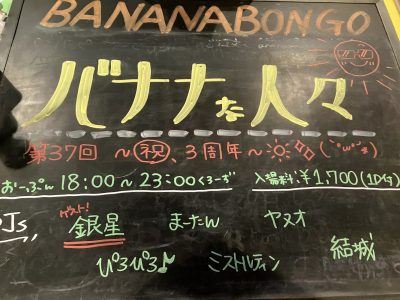 BANANABONGO
バナナな人々
第37回 ~㊗、3周年~
おーぷん 18:00~23:00くろーず 入場料:¥1,700(1D付)
DJs,
ゲスト!
銀星 まーたん ヤヌオ
ぴろぴろ♪ ミストルティン 結城